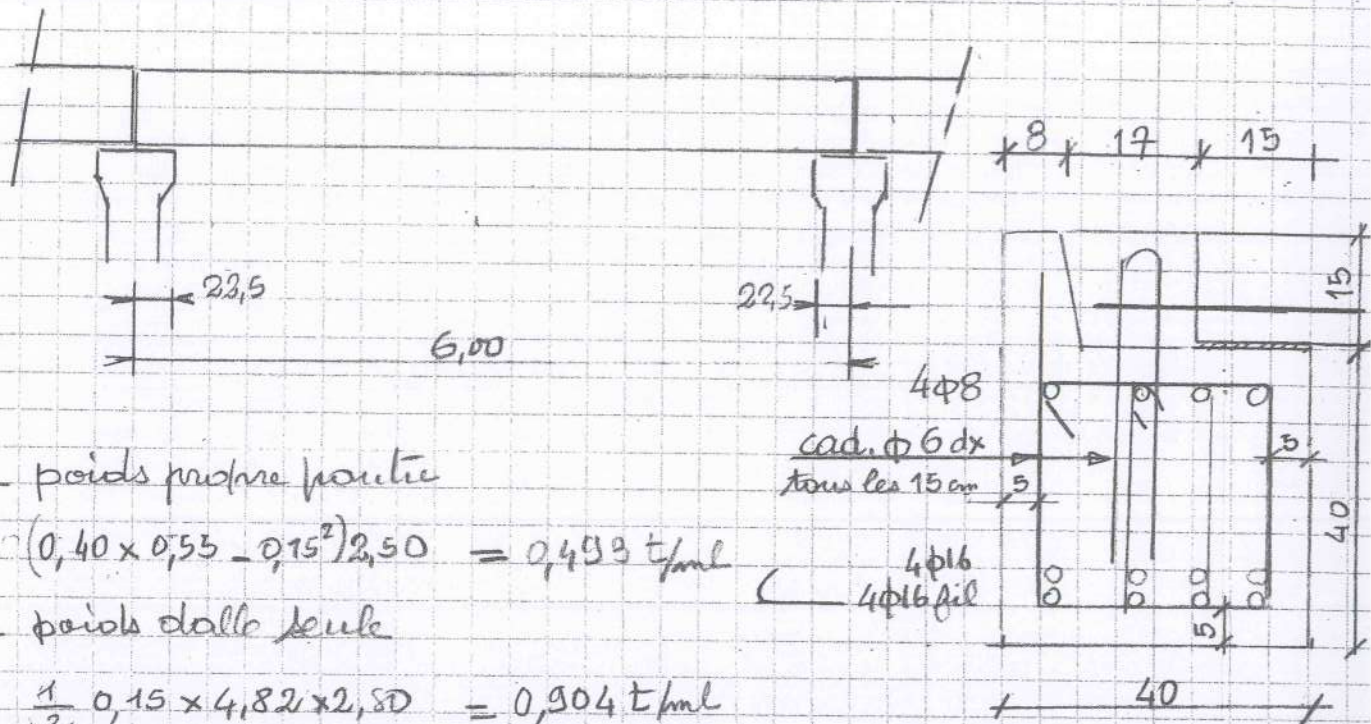 8 17 15
23,5
22,5
6,00
15
4φ8
cad. φ 6 dx
tous les 15 cm
5
5
40
4φ16
4φ16 fil
5
40
- poids propre poutre
(0,40 × 0,55 - 0,15²)2,50 = 0,493 t/ml
- poids dalle seule
1/2 0,15 × 4,82 × 2,50 = 0,904 t/ml